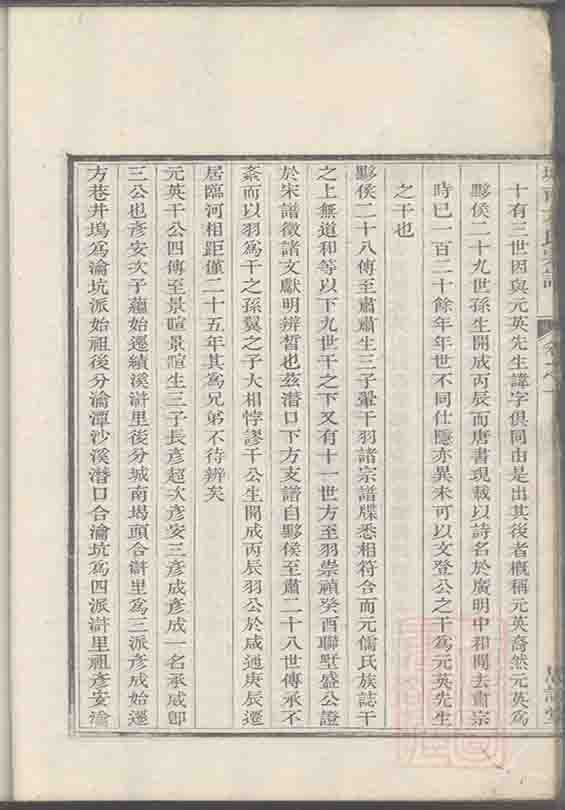 十有三世因與元英先生諱字俱同由是出其後者槪稱元英裔然元英爲
黟侯二十九世孫生開成丙辰而唐書現載以詩名於廣明中和間去肅宗
時已一百二十餘年年世不同仕隱亦異未可以文登公之干爲元英先生
之干也
黟侯二十八傳至肅肅生三子翬干羽諸宗譜牒悉相符合而元儒氏族誌干
之上無道和等以下九世干之下又有十一世方至羽崇禎癸酉聯墅盛公證
於宋譜徵諸文獻明辨晳也茲潛口下方支譜自黟侯至肅二十八世傳承不
紊而以羽爲干之孫翼之子大相悖謬干公生開成丙辰羽公於咸通庚辰遷
居臨河相距僅二十五年其爲兄弟不待辨矣
元英干公四傳至景暄景暄生三子長彥超次彥安三彥成彥成一名承威卽
三公也彥安次子蘊始遷績溪滸里後分城南塌頭合滸里爲三派彥成始遷
方巷井塢爲瀹坑派始祖後分瀹潭沙溪潛口合瀹坑爲四派滸里祖彥安瀹